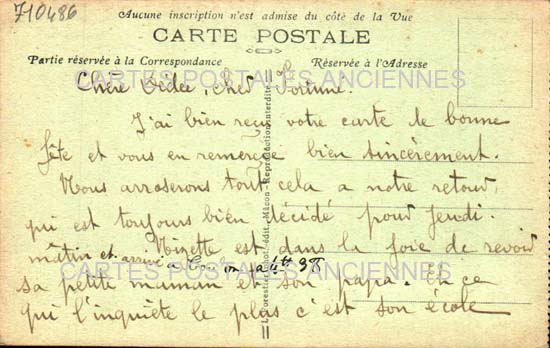 710486
Aucune inscription n'est admise du côté de la Vue
CARTE POSTALE
Partie réservée à la Correspondance
Réservée à l'Adresse
CARTES POSTALES ANCIENNES
Chère cher
J'ai bien reçu votre carte de bonne
fête et vous en remercie bien sincèrement.
Nous arroserons tout cela a notre retour,
qui est toujours bien décidé pour Jeudi.
mâtin et arrivé a
Nizette est dans la joie de revoir
CARTES POSTALES ANCIENNES
sa petite maman et son papa. En ce
qui l'inquiète le plus c'est son école
phot.-édit., Mâcon - Reproduction interdite